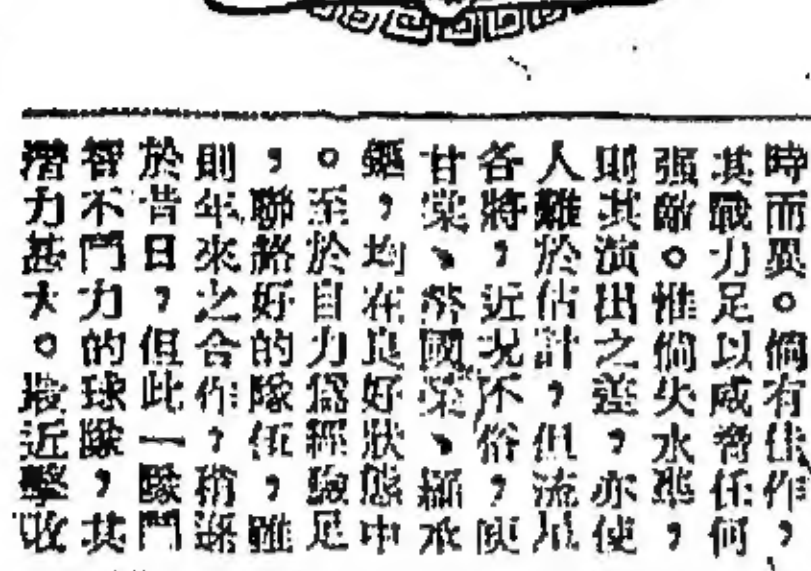 時而異。倘有佳作，
其戰力足以威脅任何
强敵。惟倘失水準，
則其演出之差，亦使
人難於估計，但流星
各將，近况不俗，
甘棠、國榮、錦
，均在良好狀態中
。至於自力經驗足
，聯絡好的隊伍，雖
則年來之合作，稍遜
於昔日，但此一隊鬥
智不鬥力的球隊，其
潛力甚大。最近擊敗